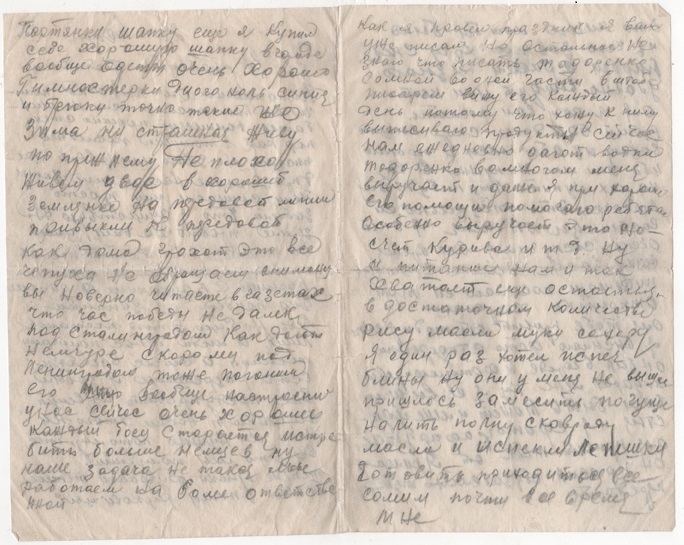 Портянки шапку еще я купил
себе хорошую шапку вгоде
вообще одеты очень хорошо
Гимностерки диогональ синие
и брюки точно такие що
Зима ни страшна Живу
по прижнему Не плохо
Живем двое в хорошей
землянке на
привыкли
как дома грохот это все
чепуха не оброщаем внимону
вы наверно читаете в газетах
что час победы не далек
под Сталинградом как дали
немчуре скоро мы под
Ленинградом тоже погоним
его вообще настроени
у нас сейчас очень хорошие
каждый боец старается истре
бить больше немцев ну
наше задача не такая мы
работаем на более ответстве
ной
как я провел праздник я вам
уже писал но остольное не
знаю что писать Тодоренко
сомной водной части
поваром вижу его каждый
день потому что хожу к нему
выписываю продукты сейчас
нам ежедневно дают водки
Тодоренко вомногом меня
выручает и даже я при
его помощи помогаю ребятам
особено выручает это но
счет курива и т д ну
и питание нам и так
хватает еще остается
в достаточном количестве
рису масла муки сахару
Я один раз хотел испеч
блины ну они у меня не вышли
пришлось замесить погуще
налить полну сковроду
масла и испекли лепешки
Готовить приходиться все
солим почти все время
мне